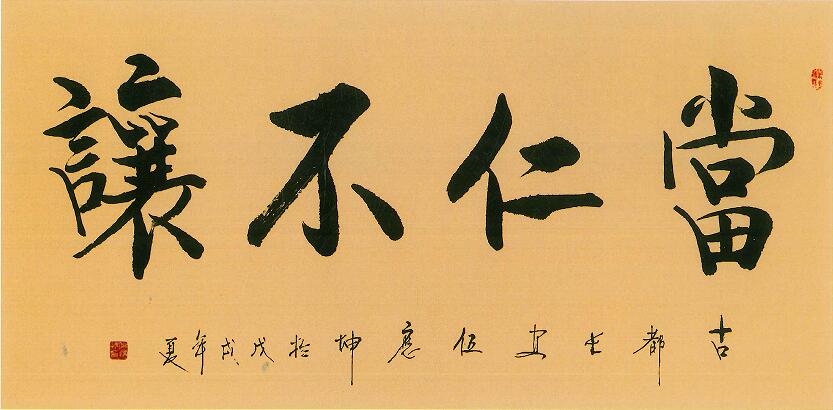 當仁不讓
古都長安伍應坤於戊戌年夏